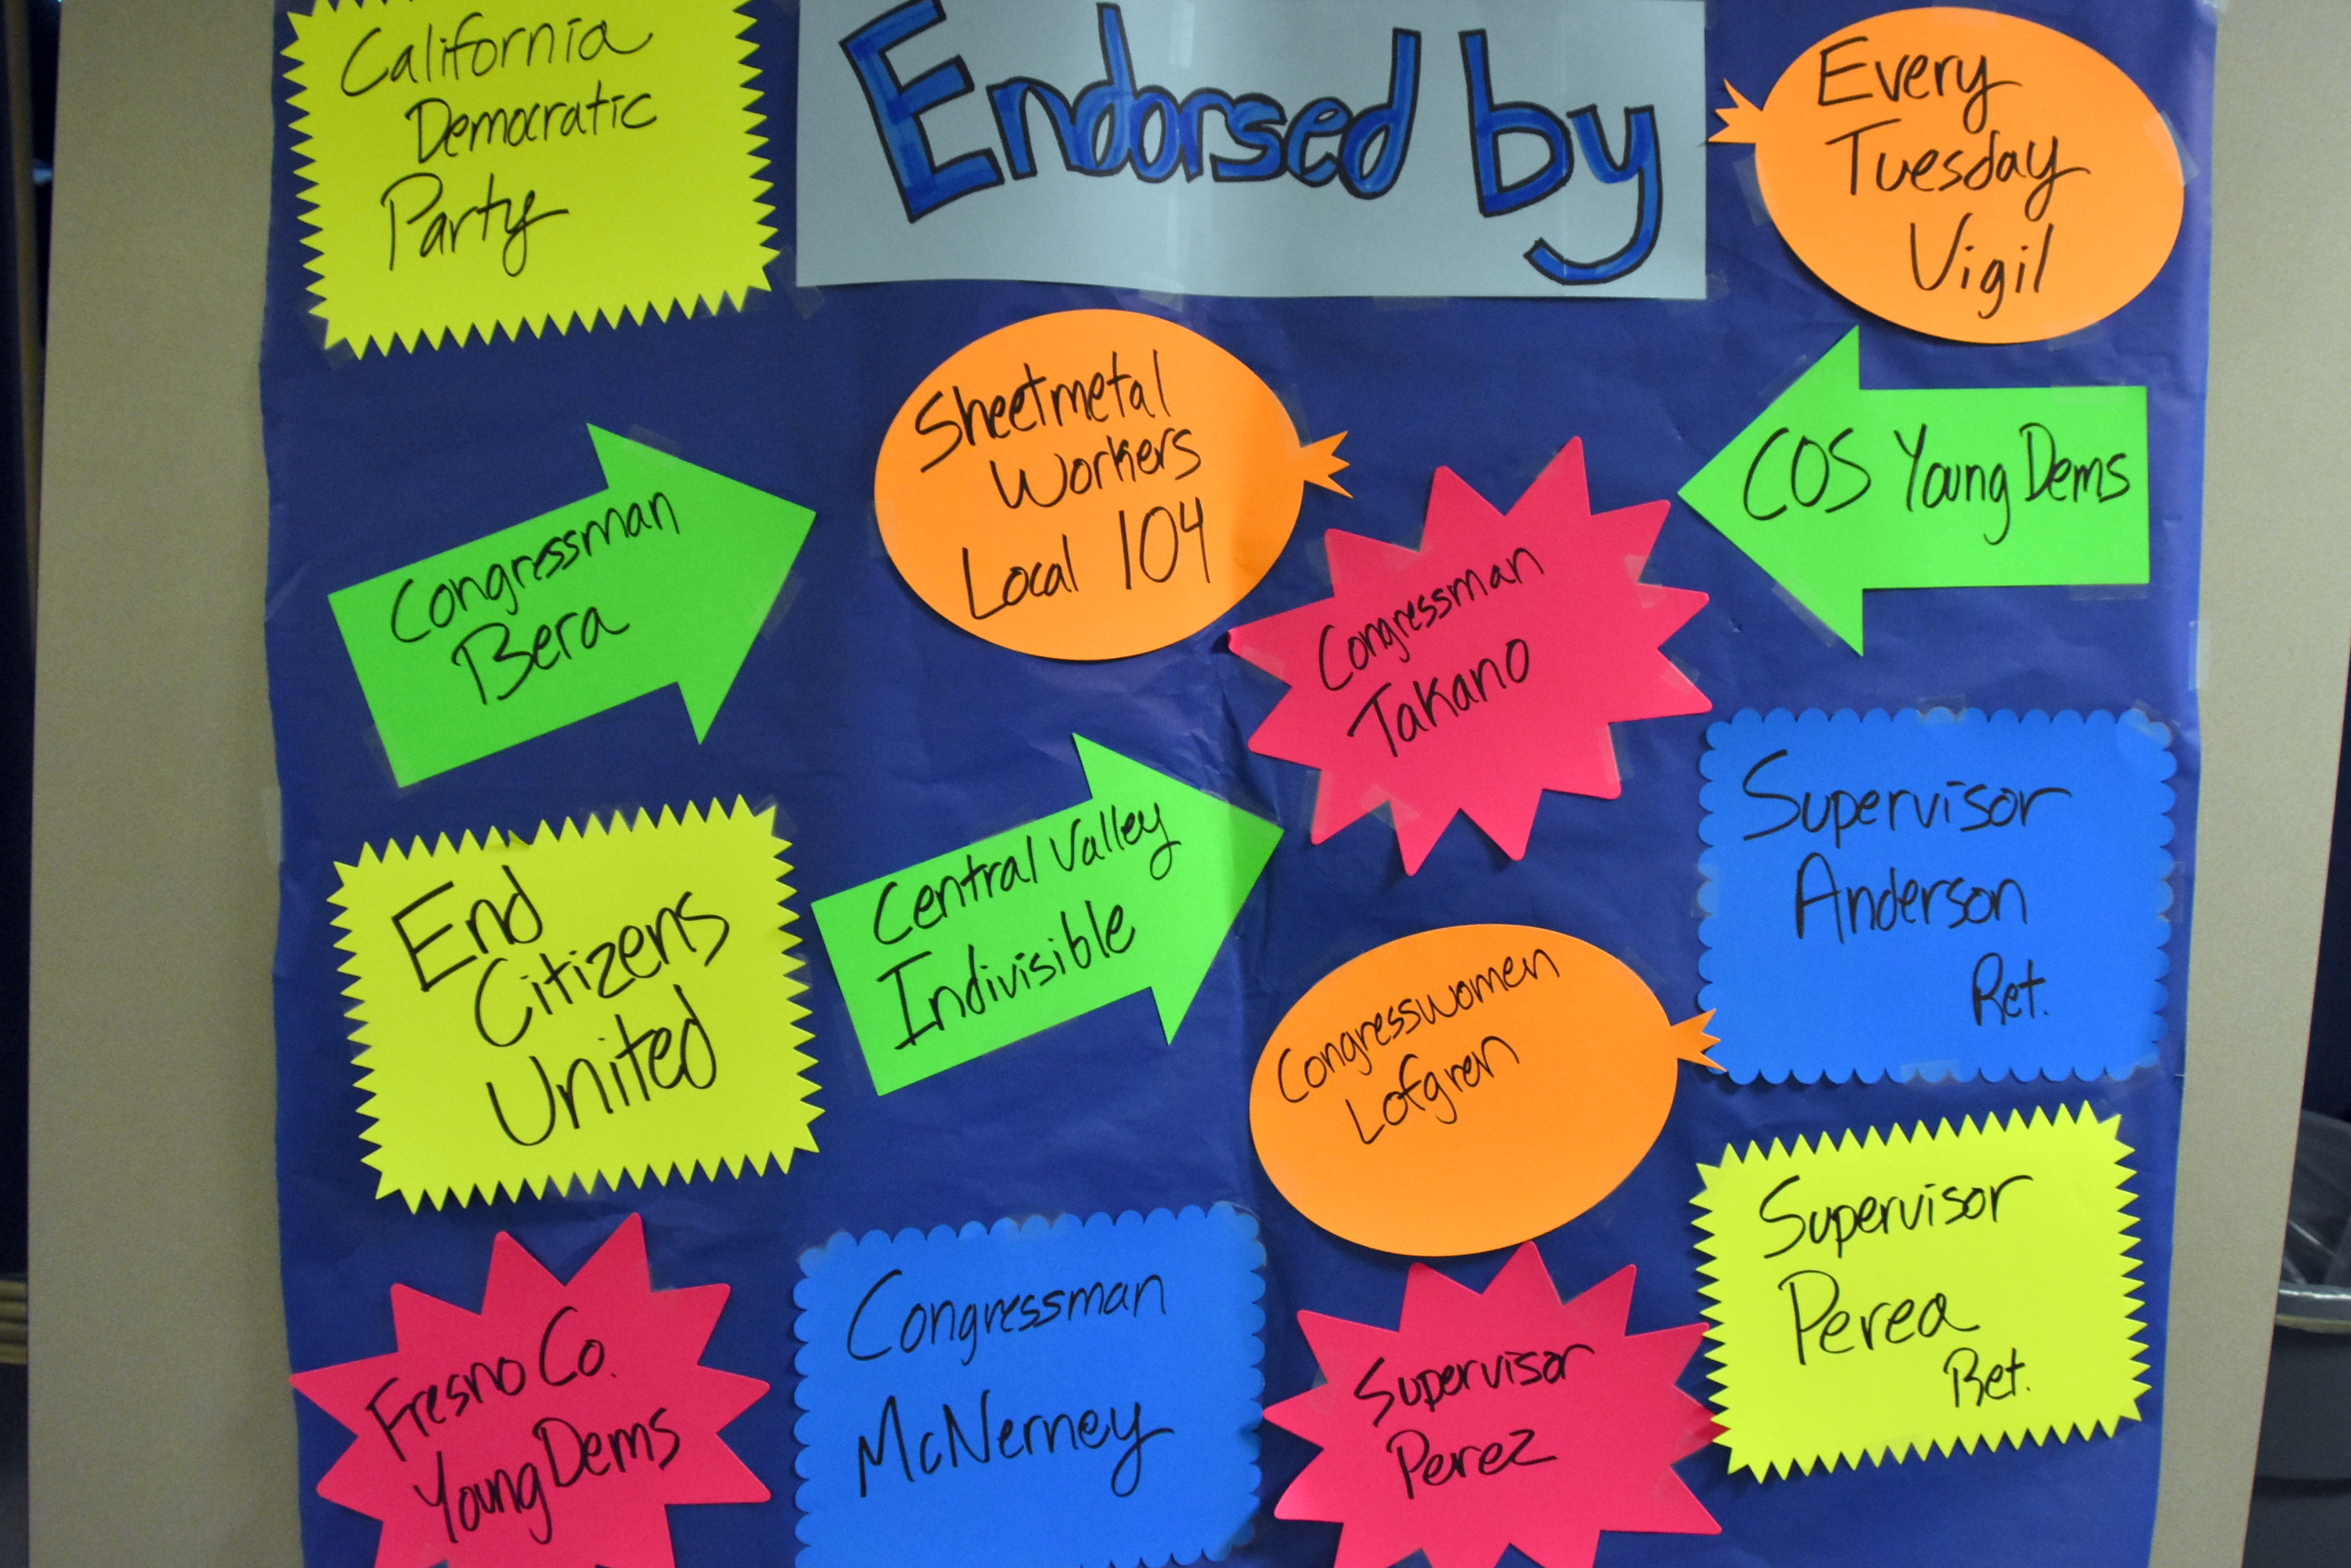 California
Democratic
Party
Endorsed by
Every
Tuesday
Vigil
Sheetmetal
Workers
Local 104
COS Young Dems
Congressman
Bera
Congressman
Takano
Supervisor
Anderson
Ret.
End
Citizens
United
Central Valley
Indivisible
Congresswomen
Lofgren
Supervisor
Perea
Ret.
Fresno Co.
Young Dems
Congressman
McNerney
Supervisor
Perez